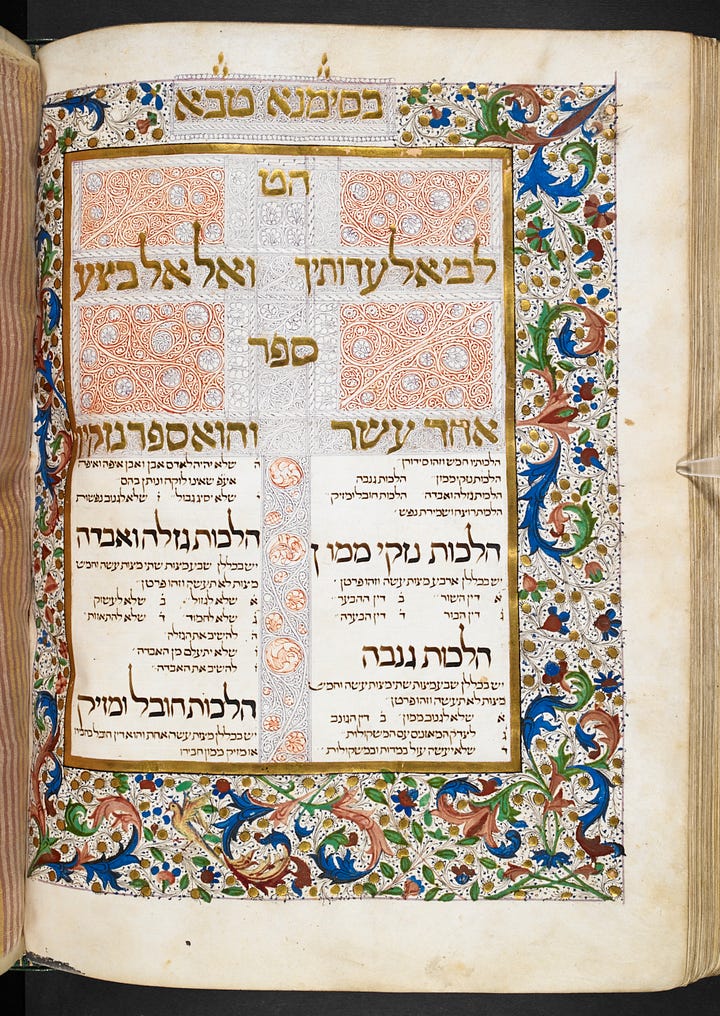 בסימנא טבא
הט
לבי אל עדותיך ואל אל בצע
ספר
אחד עשר והוא ספר נזקין
הלכותיו חמש וזהו סידורן
הלכות נזקי ממון הלכות גנבה
הלכות גזלה ואבדה הלכות חובל ומזיק
הלכות רוצח ושמירת נפש
הלכות נזקי ממון
יש בכללן ארבע מצות עשה וזהו פרטן
א דין השור ב דין ההבער
ג דין הבור ד דין הבערה
הלכות גנבה
יש בכללן שבע מצות שתי מצות עשה וחמש
מצות לא תעשה וזהו פרטן
א שלא לגנוב ממון ב דין הגונב
ג לצדק המאזנים עם המשקולות
ד שלא יעשה עול במדות ובמשקולות
ה שלא יהיה לאדם אבן ואבן איפה ואיפה
אע״פ שאינו לוקח ונותן בהם
ו שלא יסיג גבול ז שלא לגנוב נפשות
הלכות גזלה ואבדה
יש בכללן שבע מצות שתי מצות עשה וחמש
מצות לא תעשה וזהו פרטן
א שלא לגזול ב שלא לעשוק
ג שלא לחמוד ד שלא להתאוות
ה להשיב את הגזלה
ו שלא יתעלם מן האבדה
ז להשיב את האבדה
הלכות חובל ומזיק
יש בכללן מצות עשה אחת והוא דין חובל
או מזיק ממון חבירו